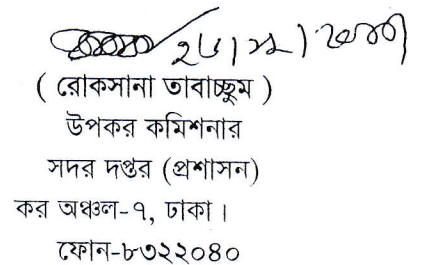 ( রোকসানা তাবাচ্ছুম )
উপকর কমিশনার
সদর দপ্তর (প্রশাসন)
কর অঞ্চল-৭, ঢাকা।
ফোন-৮৩২২০৪০